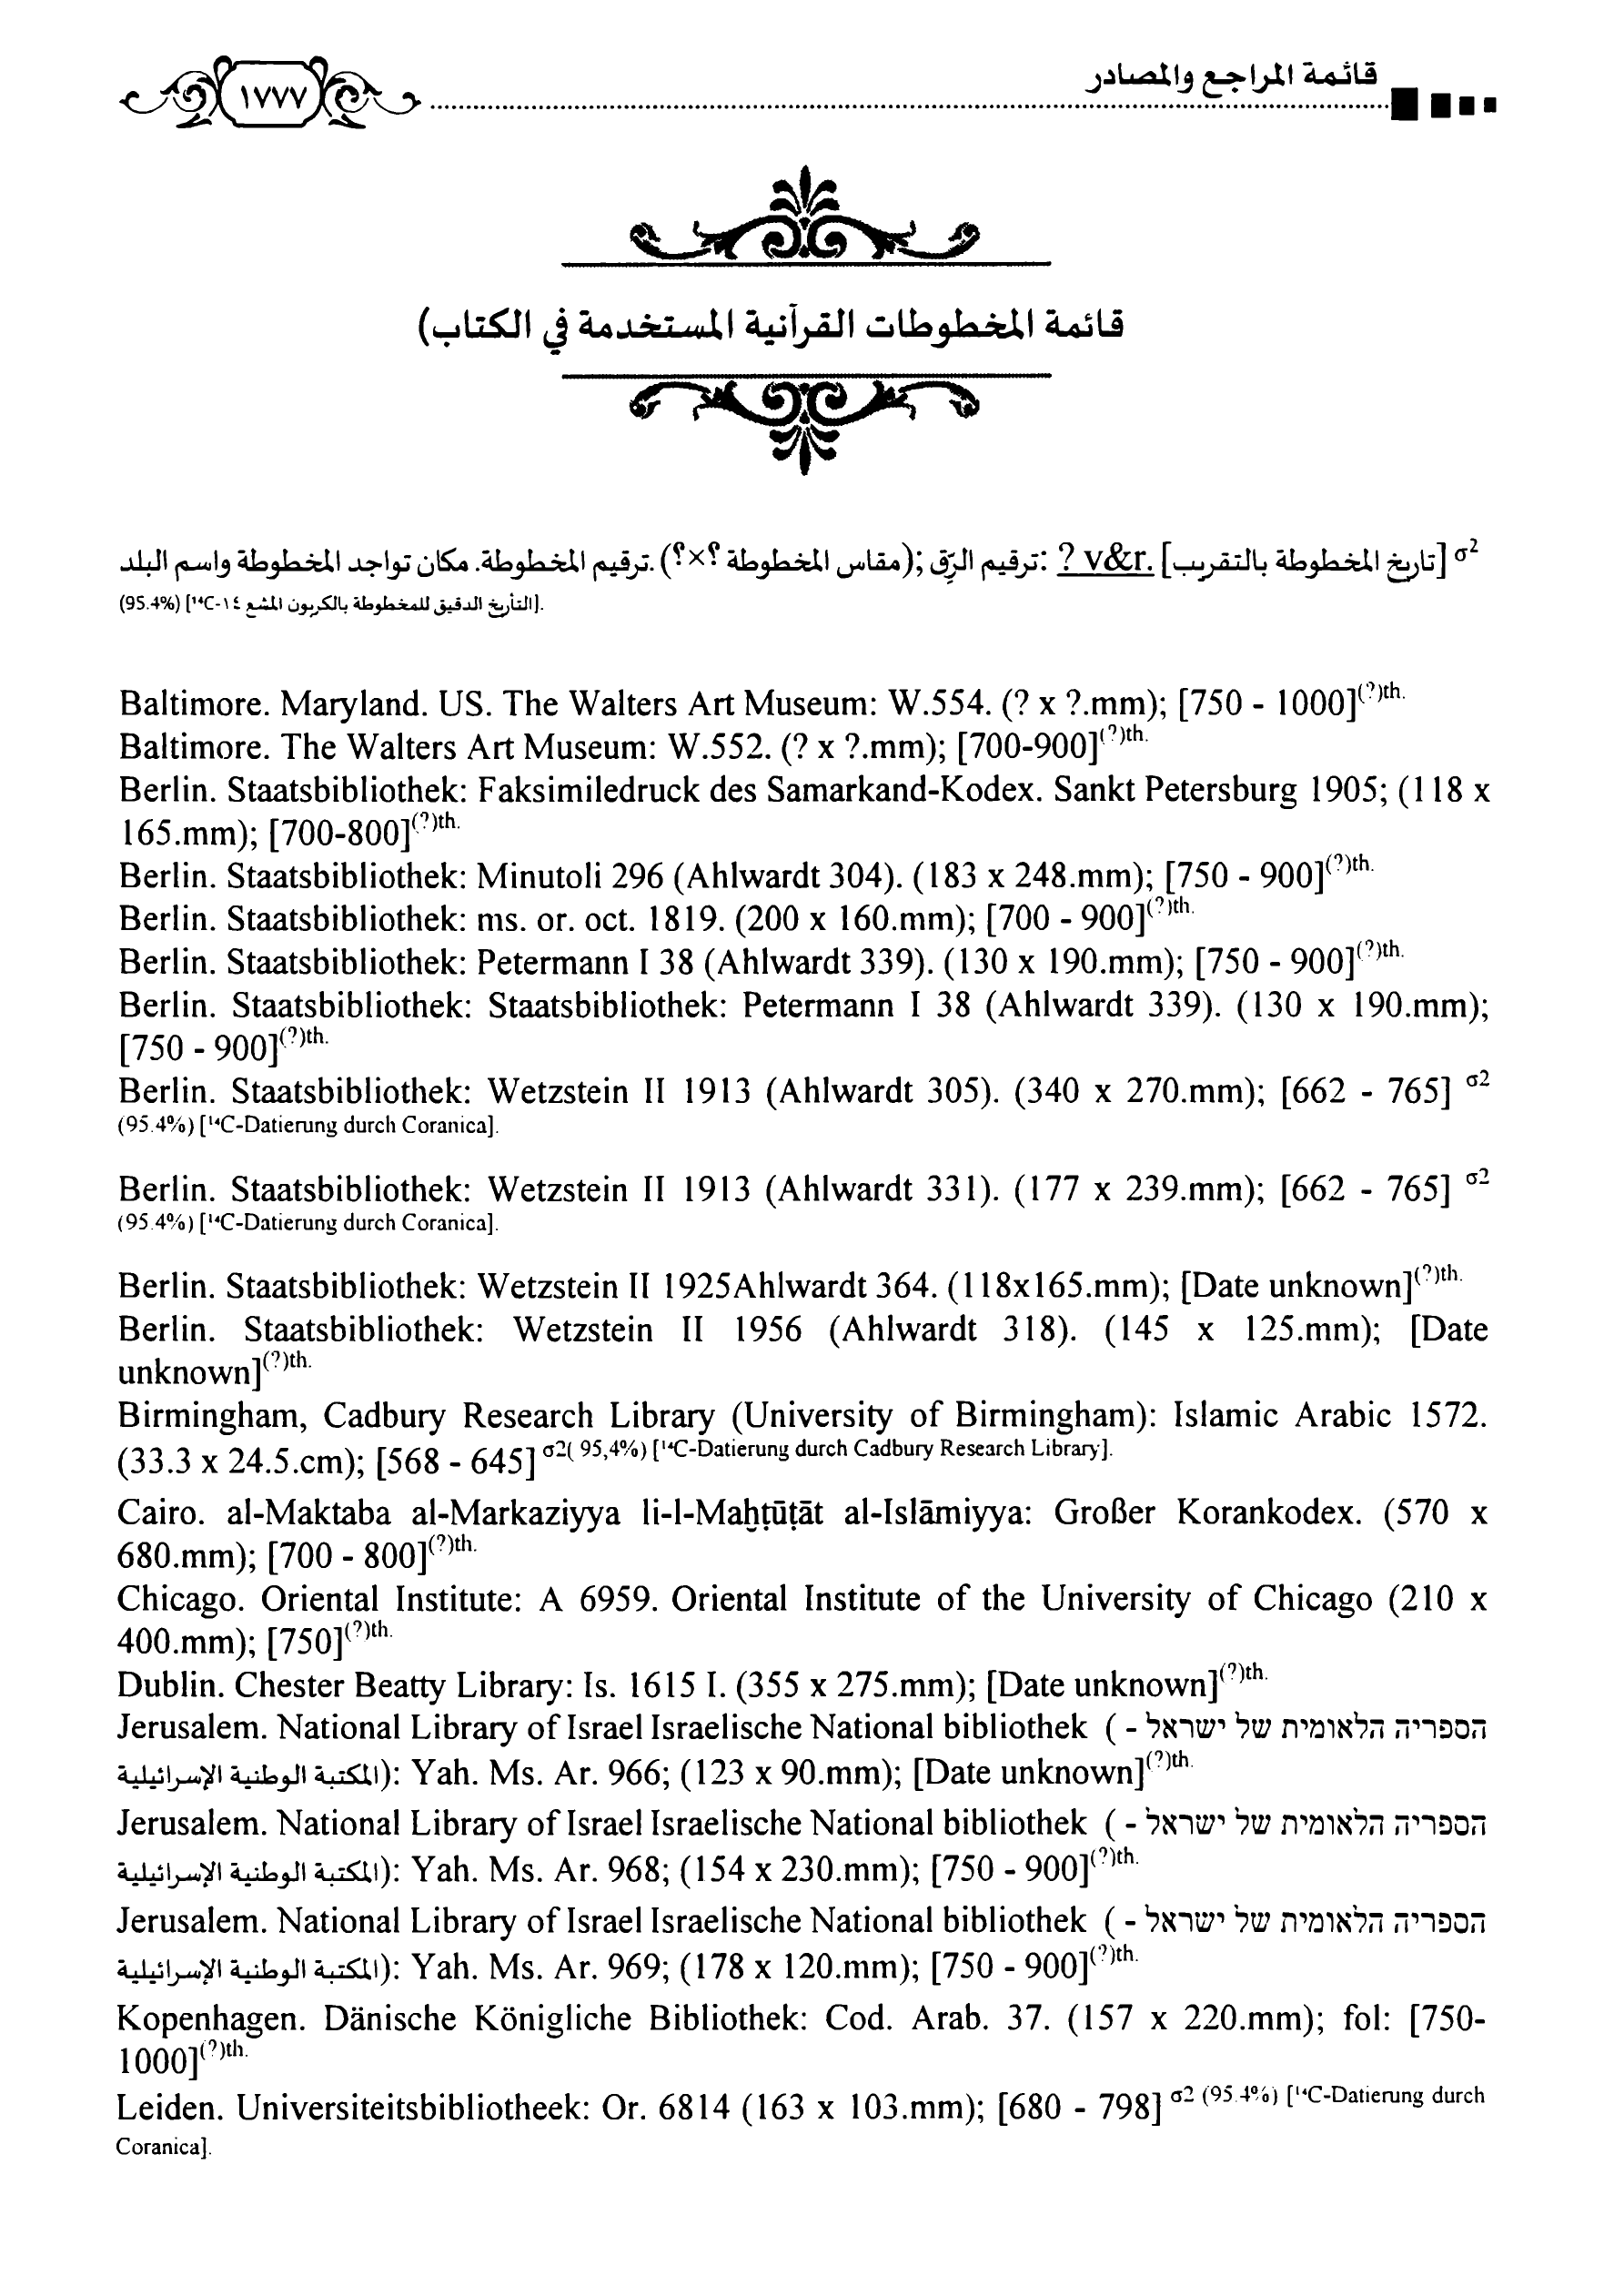 قائمة المراجع والمصادر
١٧٧٧
قائمة المخطوطات القرآنية المستخدمة في الكتاب)
σ² [تاريخ المخطوطة بالتقريب] .v&r ? :ترقيم الرّق ;(مقاس المخطوطة ؟×؟). ترقيم المخطوطة. مكان تواجد المخطوطة واسم البلد
(95.4%) [¹⁴C-١٤ التأريخ الدقيق للمخطوطة بالكربون المشع].
Baltimore. Maryland. US. The Walters Art Museum: W.554. (? x ?.mm); [750 - 1000](?)th.
Baltimore. The Walters Art Museum: W.552. (? x ?.mm); [700-900](?)th.
Berlin. Staatsbibliothek: Faksimiledruck des Samarkand-Kodex. Sankt Petersburg 1905; (118 x
165.mm); [700-800](?)th.
Berlin. Staatsbibliothek: Minutoli 296 (Ahlwardt 304). (183 x 248.mm); [750 - 900](?)th.
Berlin. Staatsbibliothek: ms. or. oct. 1819. (200 x 160.mm); [700 - 900](?)th.
Berlin. Staatsbibliothek: Petermann I 38 (Ahlwardt 339). (130 x 190.mm); [750 - 900](?)th.
Berlin. Staatsbibliothek: Staatsbibliothek: Petermann I 38 (Ahlwardt 339). (130 x 190.mm);
[750 - 900](?)th.
Berlin. Staatsbibliothek: Wetzstein II 1913 (Ahlwardt 305). (340 x 270.mm); [662 - 765] σ2
(95.4%) [¹⁴C-Datierung durch Coranica].
Berlin. Staatsbibliothek: Wetzstein II 1913 (Ahlwardt 331). (177 x 239.mm); [662 - 765] σ2
(95.4%) [¹⁴C-Datierung durch Coranica].
Berlin. Staatsbibliothek: Wetzstein II 1925Ahlwardt 364. (118x165.mm); [Date unknown](?)th.
Berlin. Staatsbibliothek: Wetzstein II 1956 (Ahlwardt 318). (145 x 125.mm); [Date
unknown](?)th.
Birmingham, Cadbury Research Library (University of Birmingham): Islamic Arabic 1572.
(33.3 x 24.5.cm); [568 - 645] σ2( 95,4%) [¹⁴C-Datierung durch Cadbury Research Library].
Cairo. al-Maktaba al-Markaziyya li-l-Maḫṭūṭāt al-Islāmiyya: Großer Korankodex. (570 x
680.mm); [700 - 800](?)th.
Chicago. Oriental Institute: A 6959. Oriental Institute of the University of Chicago (210 x
400.mm); [750](?)th.
Dublin. Chester Beatty Library: Is. 1615 I. (355 x 275.mm); [Date unknown](?)th.
Jerusalem. National Library of Israel Israelische National bibliothek ( - הספריה הלאומית של ישראל
المكتبة الوطنية الإسرائيلية): Yah. Ms. Ar. 966; (123 x 90.mm); [Date unknown](?)th.
Jerusalem. National Library of Israel Israelische National bibliothek ( - הספריה הלאומית של ישראל
المكتبة الوطنية الإسرائيلية): Yah. Ms. Ar. 968; (154 x 230.mm); [750 - 900](?)th.
Jerusalem. National Library of Israel Israelische National bibliothek ( - הספריה הלאומית של ישראל
المكتبة الوطنية الإسرائيلية): Yah. Ms. Ar. 969; (178 x 120.mm); [750 - 900](?)th.
Kopenhagen. Dänische Königliche Bibliothek: Cod. Arab. 37. (157 x 220.mm); fol: [750-
1000](?)th.
Leiden. Universiteitsbibliotheek: Or. 6814 (163 x 103.mm); [680 - 798] σ2 (95.4%) [¹⁴C-Datierung durch
Coranica].